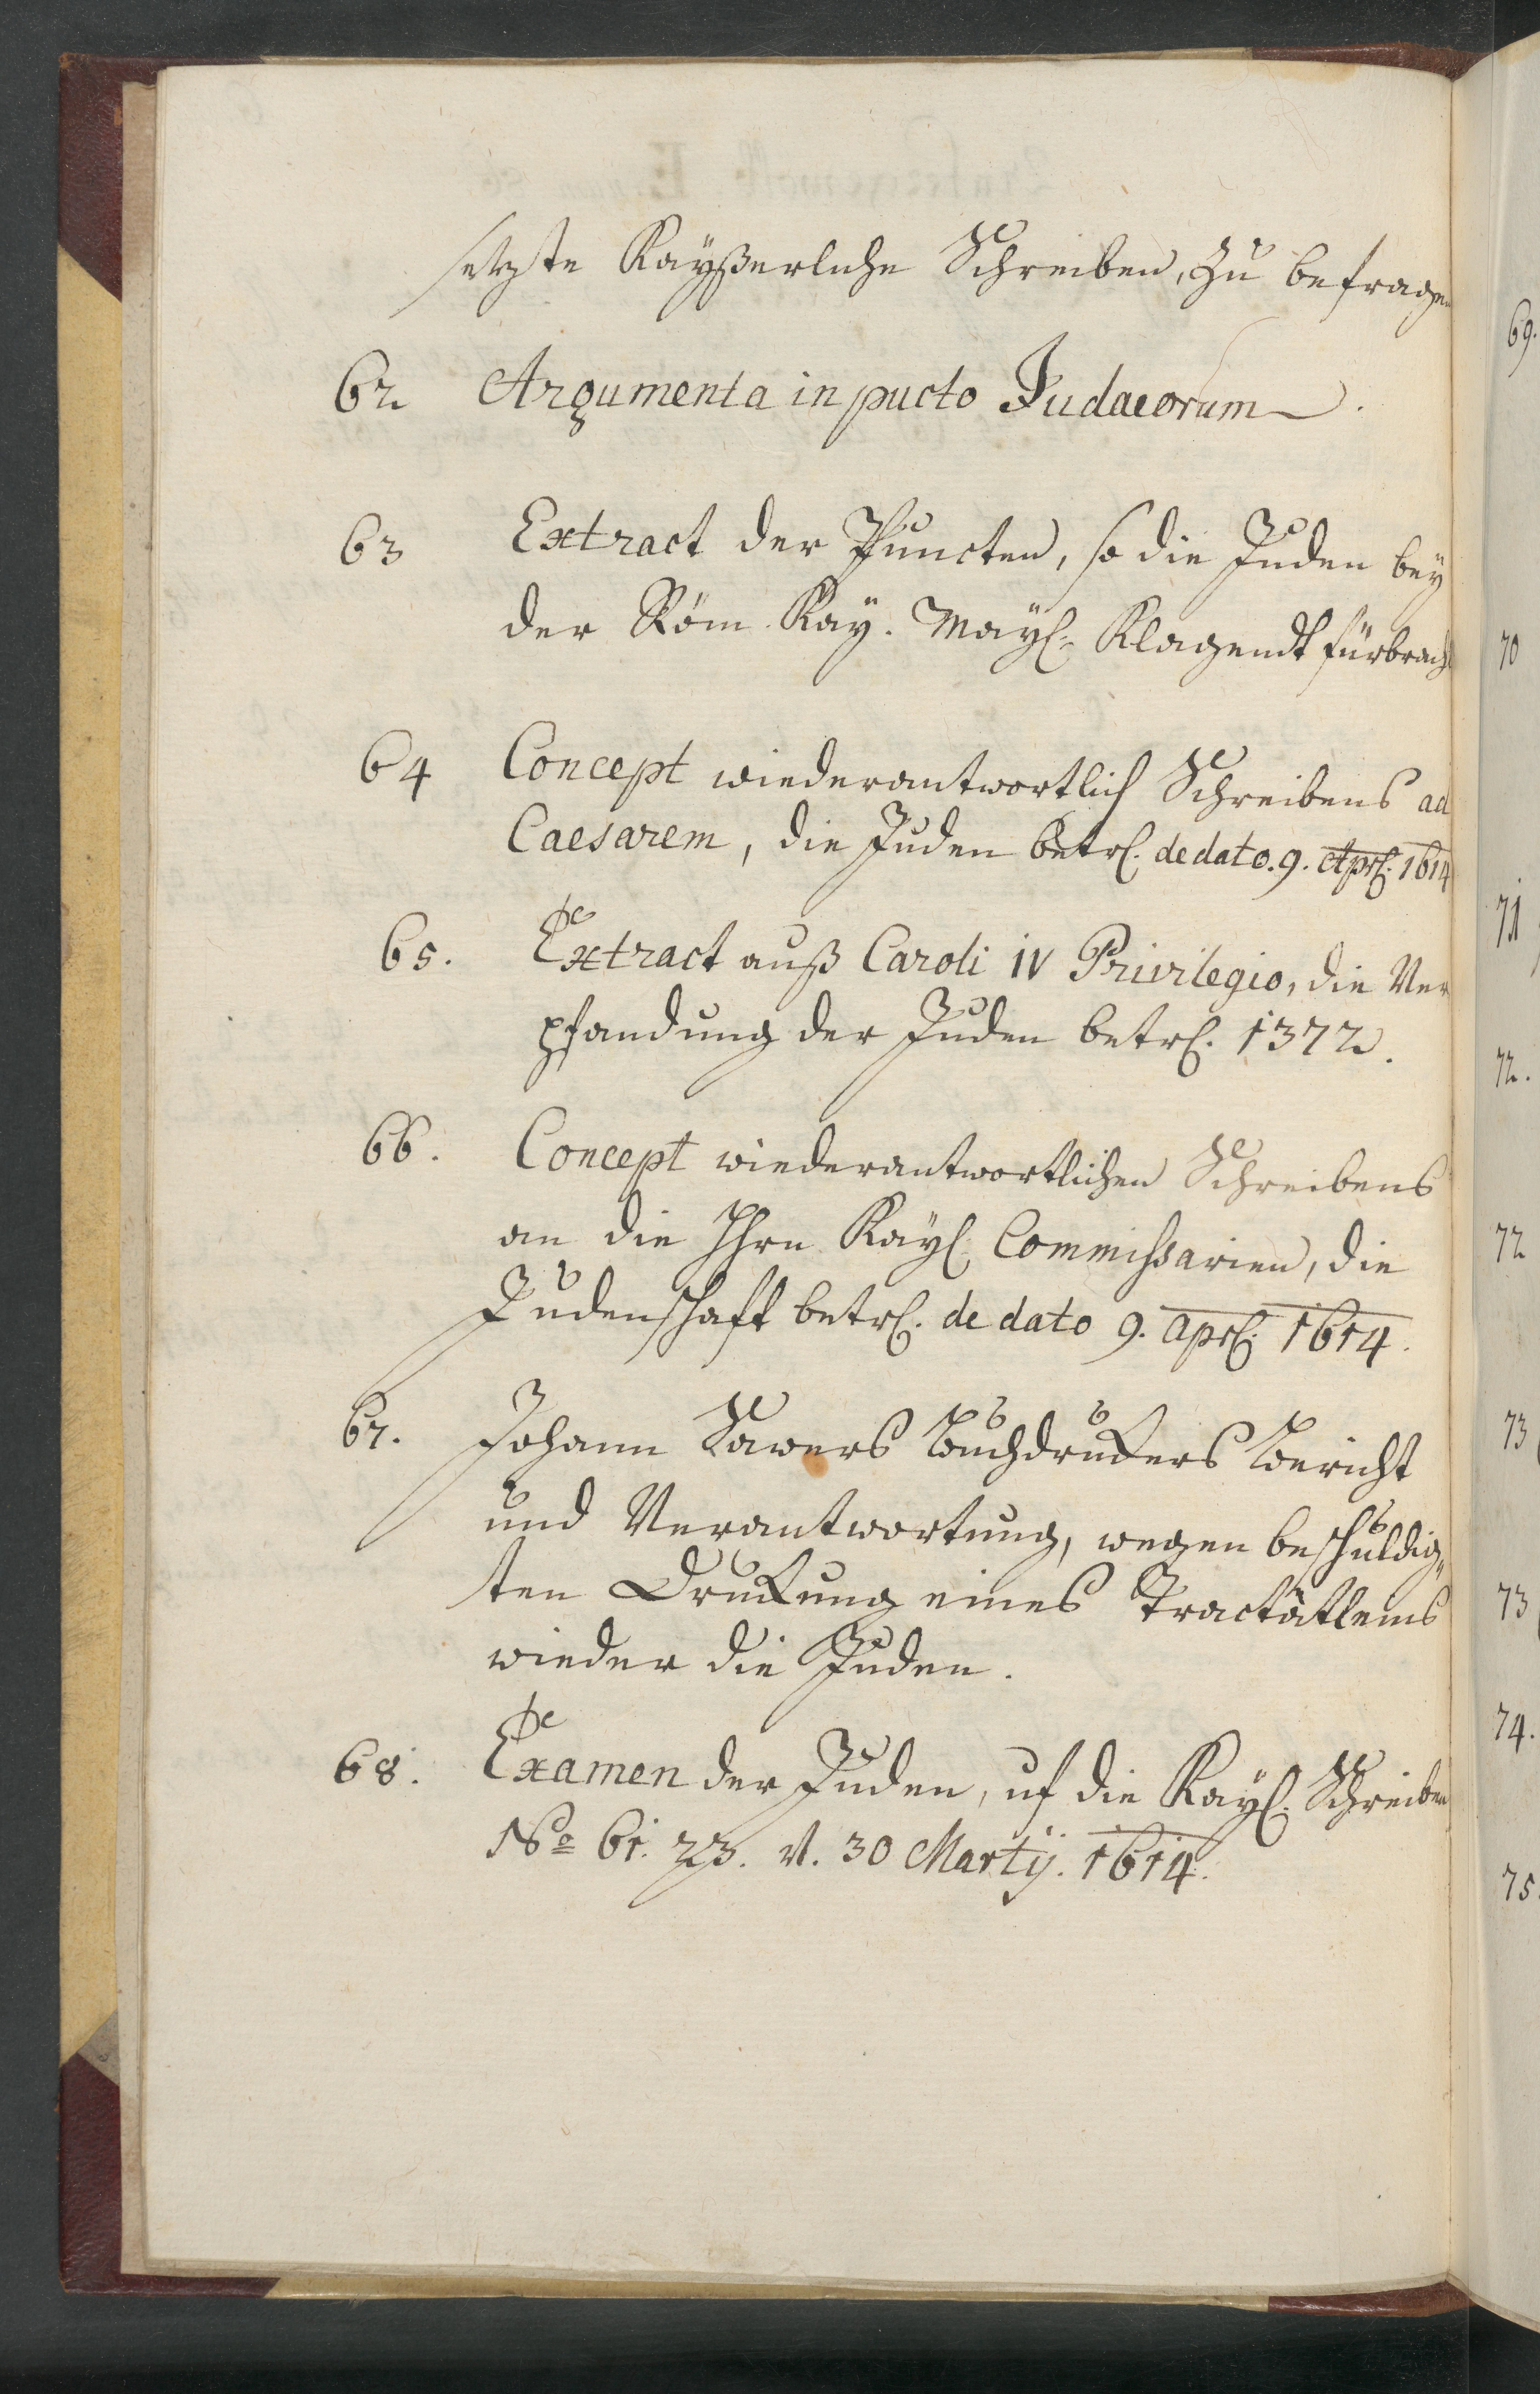 setzte Kayßerliche Schreiben, zu befragen
62 Argumenta in pucto Judaeorum.
63 Extract der Puncten, so die Juden beÿ
der Röm. Kaÿ. Maÿl. Klagendt fürbracht
64 Concept wiederantwortlich Schreibens ad
Caesarem, die Juden betrl. de dato. 9. Aprl. 1614
65. Extract auß Caroli IV Privilegio, die Ver
pfandung der Juden betrl. 1372.
66. Concept wiederantwortlichen Schreibens
an die Hhrn Kaÿl. Commissarien, die
Judenschafft betrl. de dato 9. Aprl. 1614.
67. Johann Sawers Buchdruckers Bericht
und Verantwortung, wegen beschuldig„
ten Druckung eines Tractätleins
wieder die Juden.
68. Examen der Juden, uf die Kaÿl. Schreiben
No 61. 23. v. 30 Martij. 1614.
69.
70
71
72.
72
73
73
74.
75.